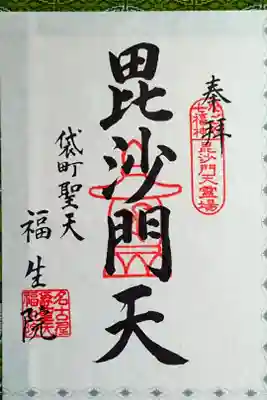 奉拝
七福神毘沙門天霊場
毘沙門天
袋町聖天
福生院
名古屋